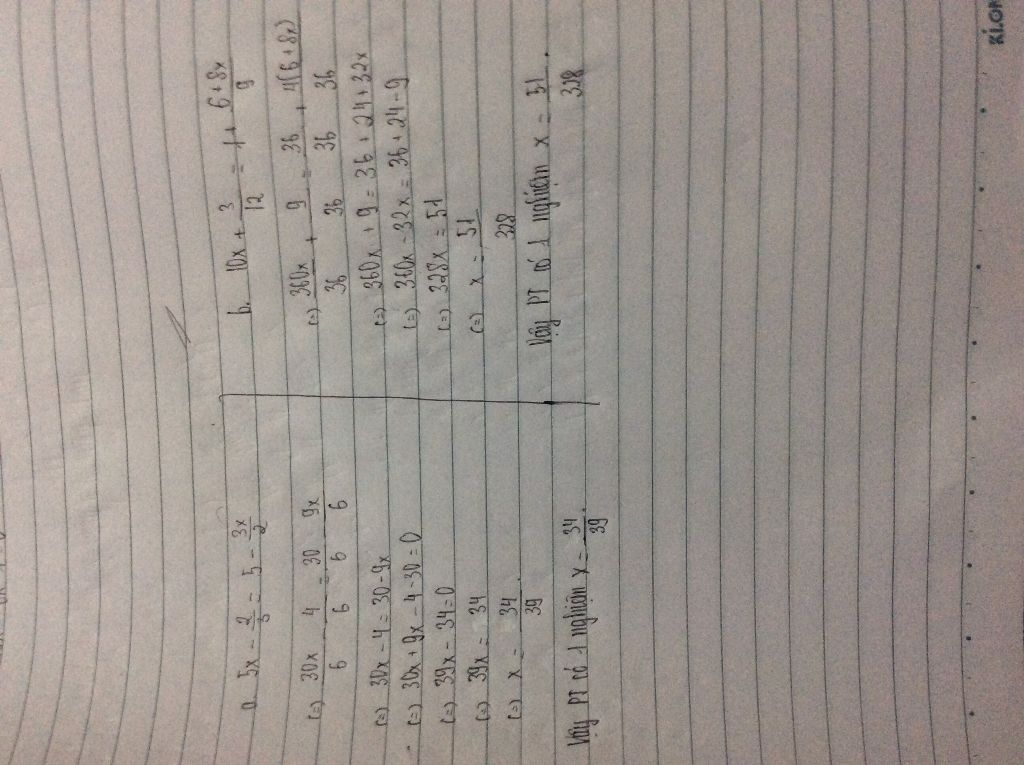 a. 5x - 2/3 = 5 - 3x/2
(=) 30x/6 - 4/6 = 30/6 - 9x/6
(=) 30x - 4 = 30 - 9x
(=) 30x + 9x - 4 - 30 = 0
(=) 39x - 34 = 0
(=) 39x = 34
(=) x = 34/39
Vậy PT có 1 nghiệm x = 34/39.
b. 10x + 3/12 = 1 + 6+8x/9
(=) 360x/36 + 9/36 = 36/36 + 4(6+8x)/36
(=) 360x + 9 = 36 + 24 + 32x
(=) 360x - 32x = 36 + 24 - 9
(=) 328x = 51
(=) x = 51/328
Vậy PT có 1 nghiệm x = 51/328.